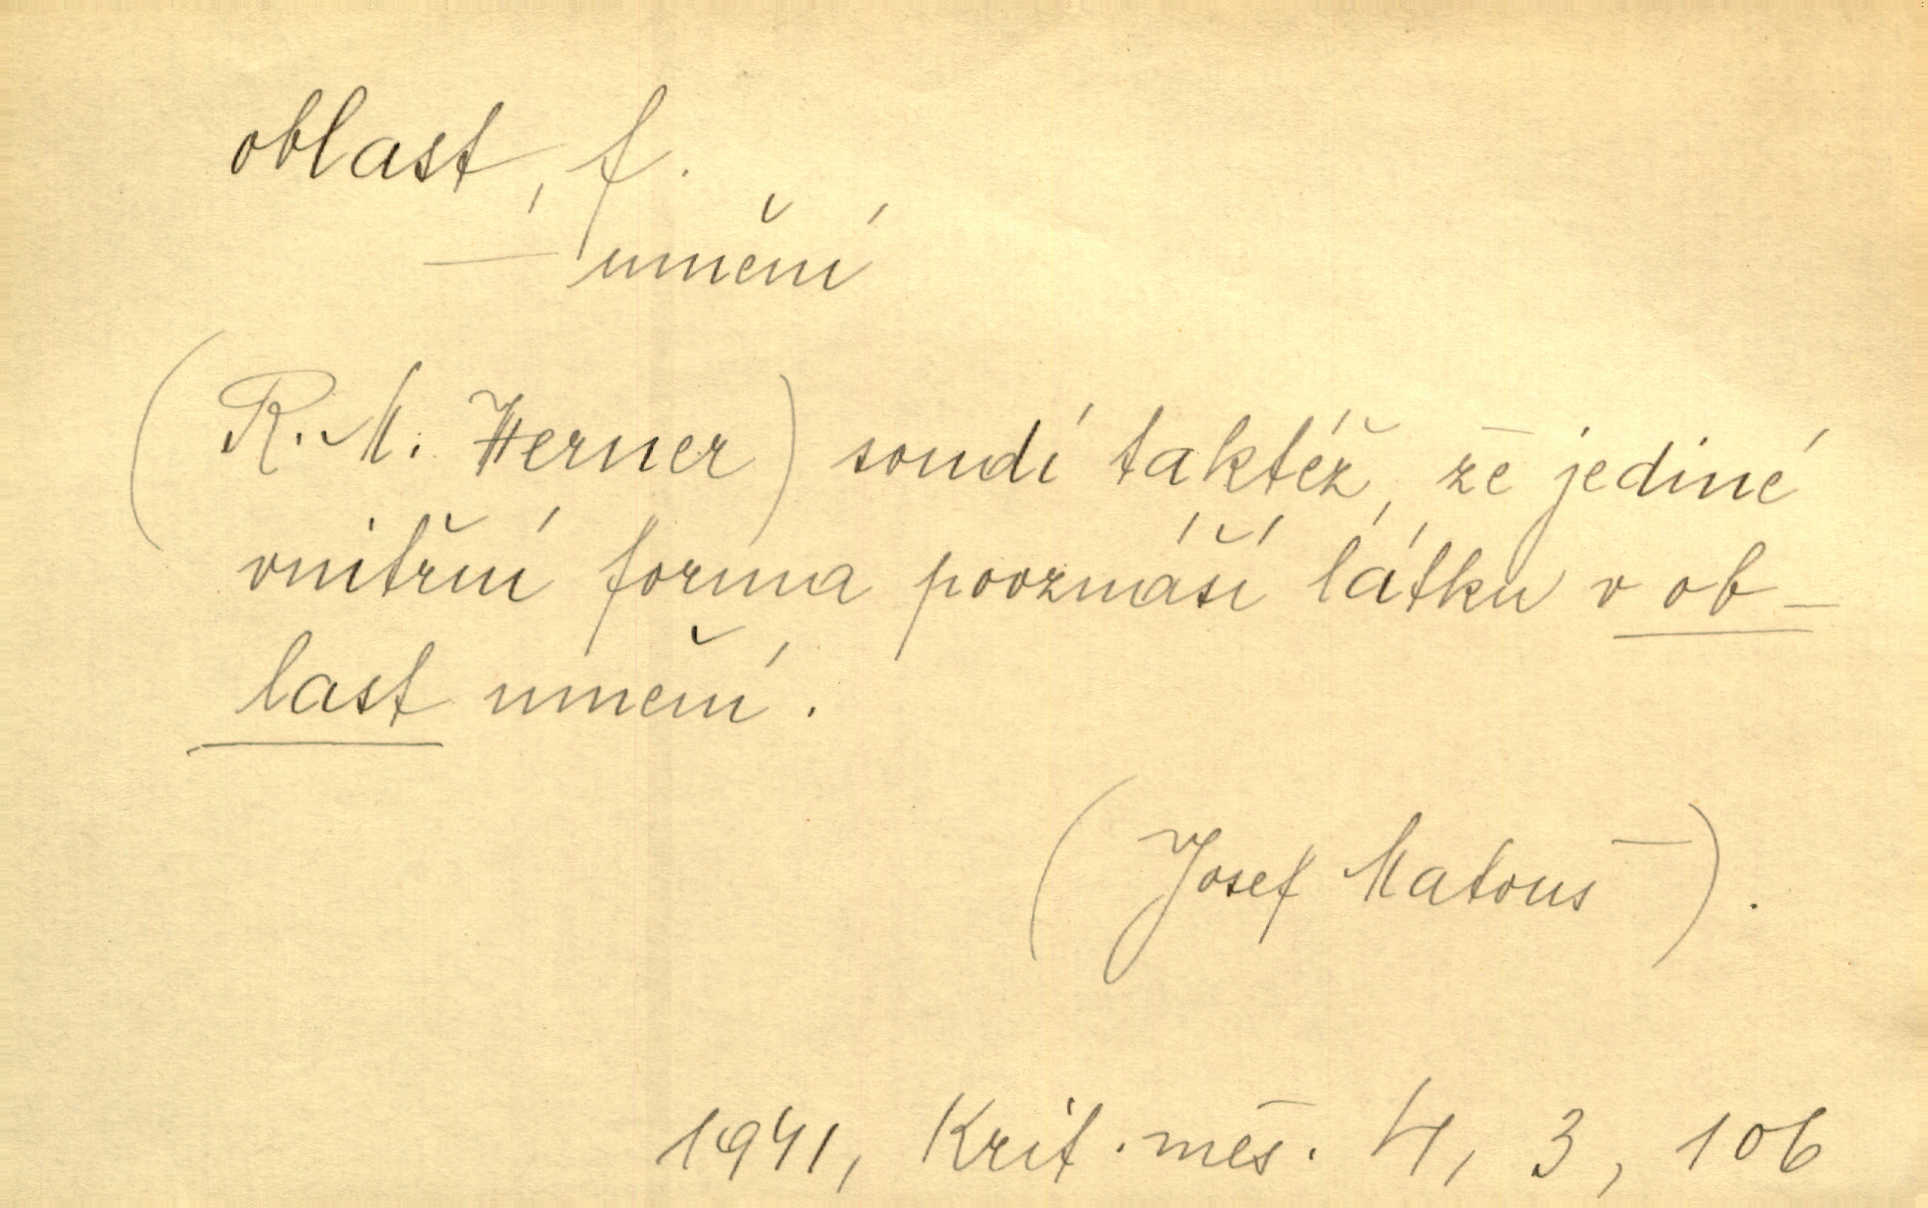 oblast, f.
— umění
(R. M. Werner) soudí taktéž, že jediné
vnitřní forma povznáší látku v ob-
last umění.
(Josef Matouš).
1941, Krit. měs. 4, 3, 106